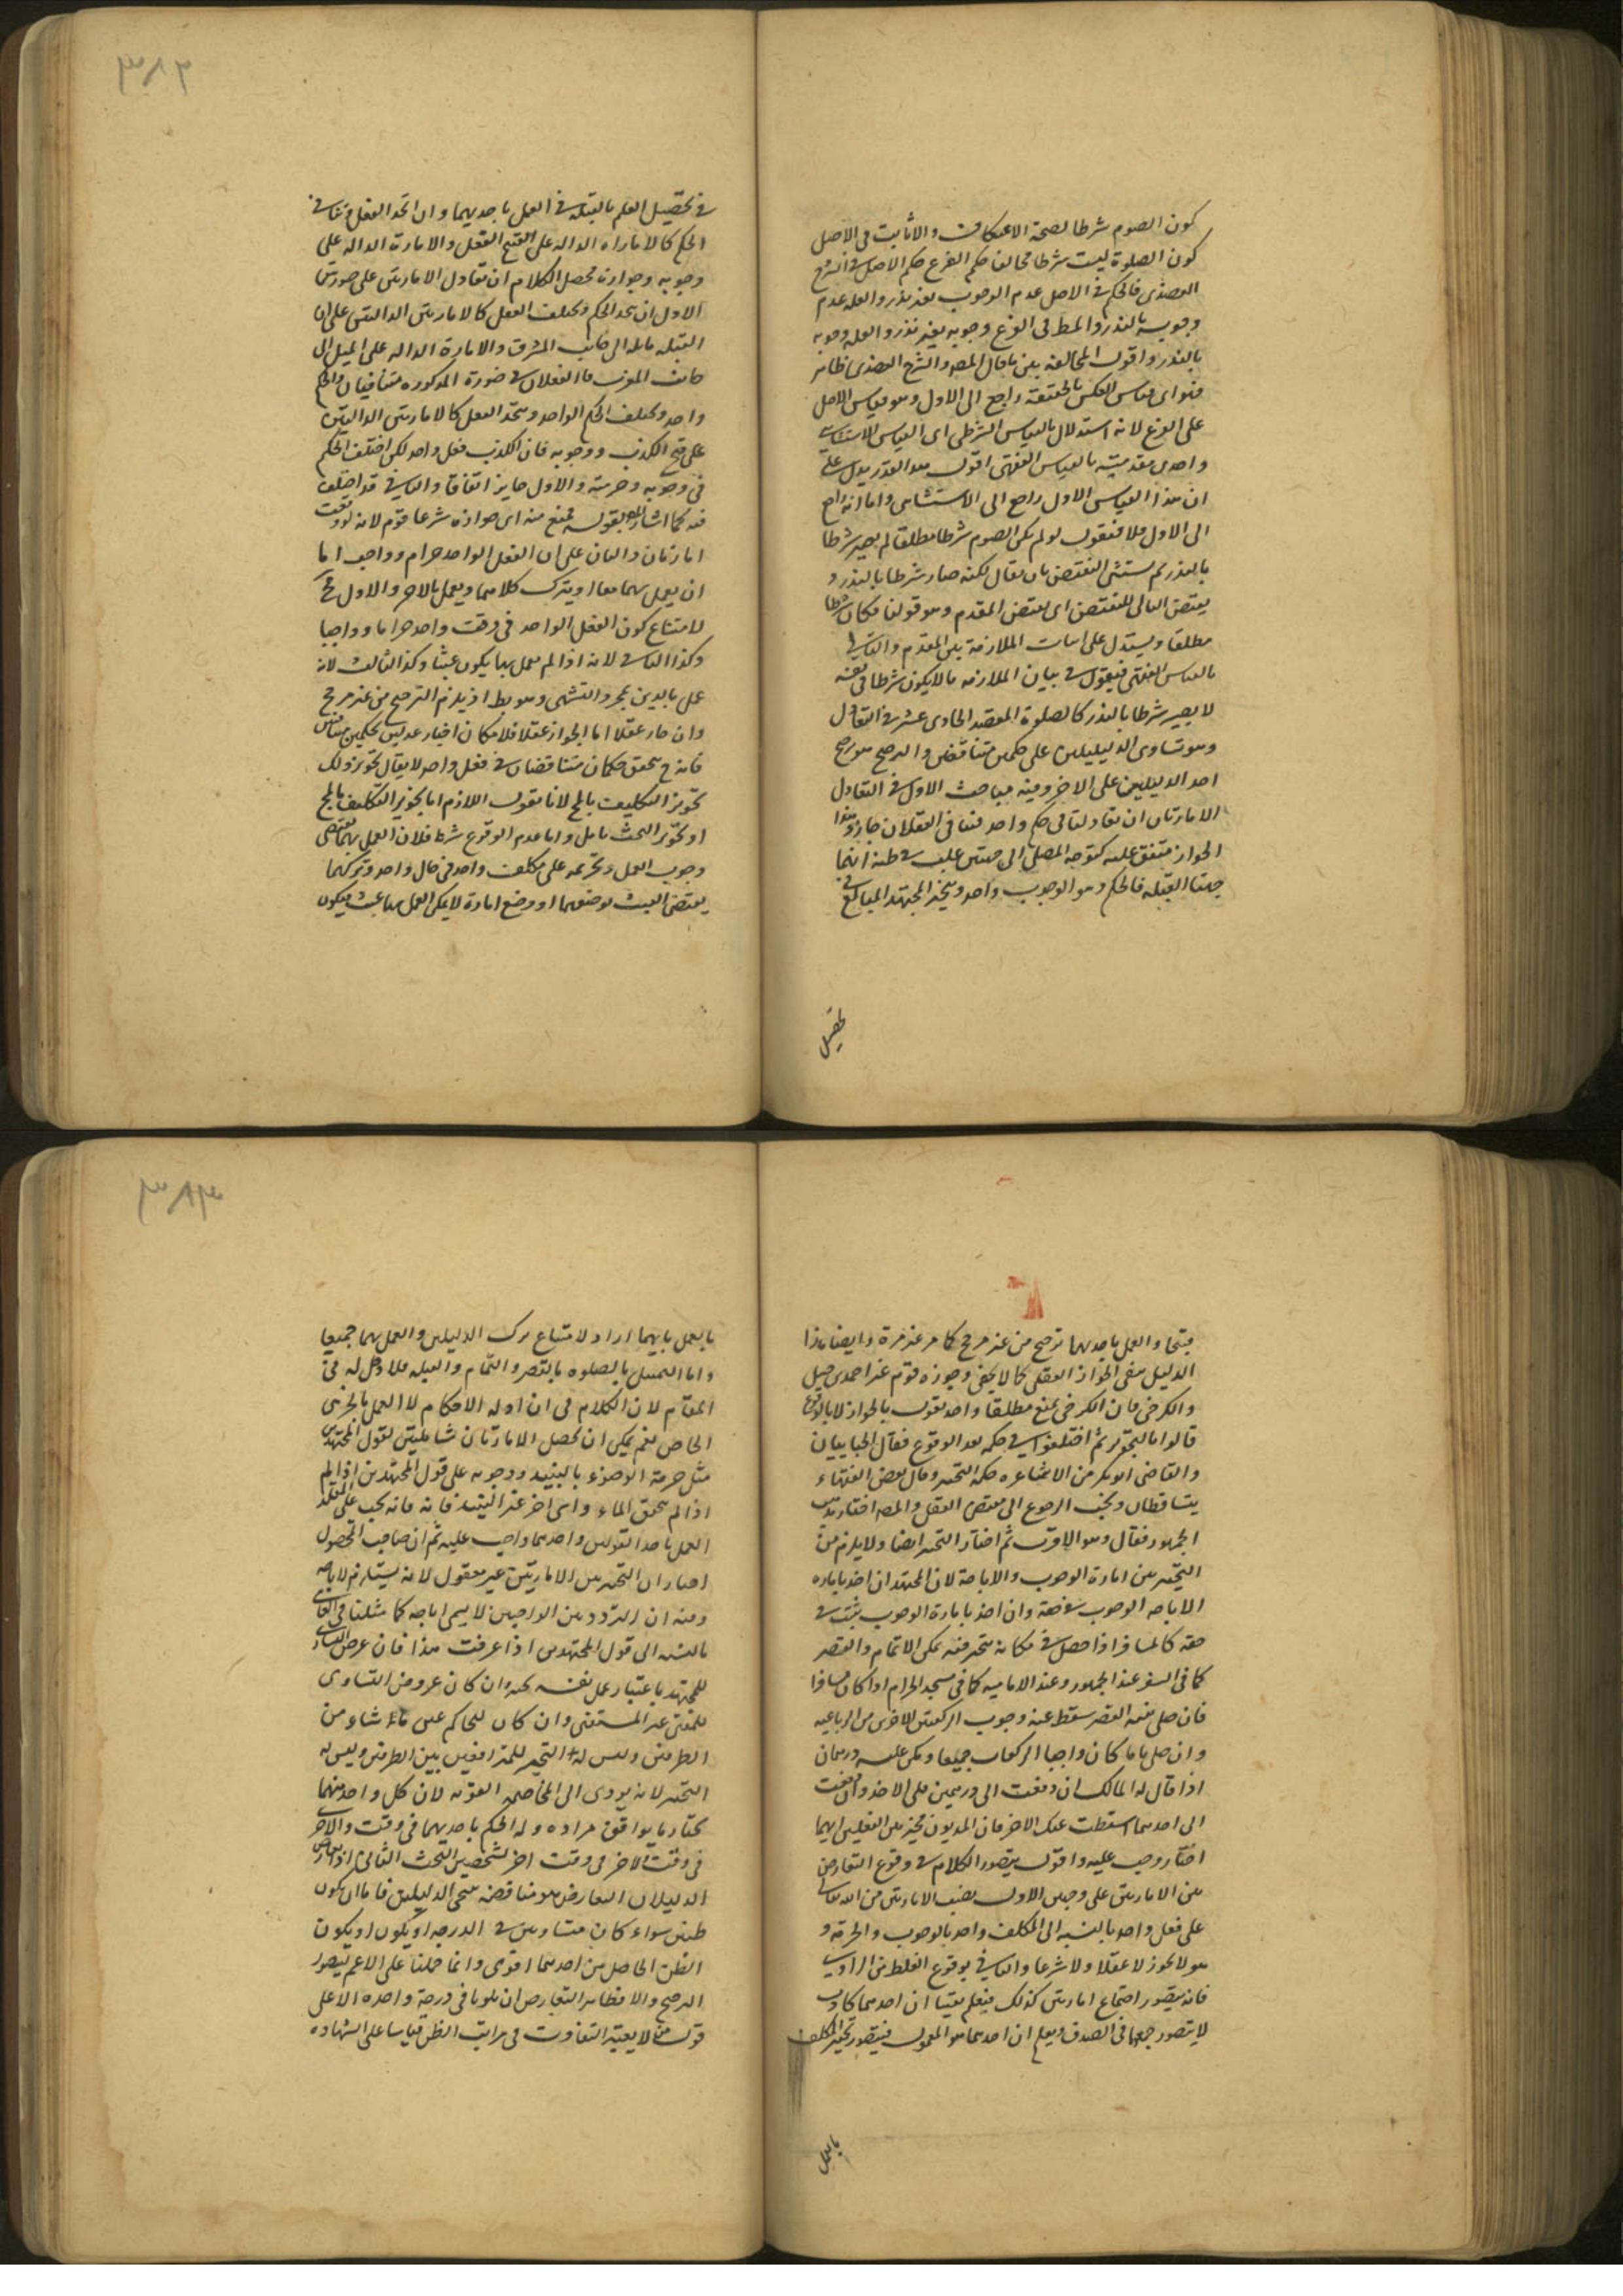 كون الصوم شرطا لصحة الاعتكاف والا ثابت في الاصل
كون الصلوة ليست شرطا مخالف حكم الفرع حكم الاصل في الشرح
العضدي فالحكم في الاصل عدم الوجوب بغير نذر والعلة عدم
وجوبه بالنذر والمط في الفرع وجوبه بغير نذر والعلة وجوبه
بالنذر واقول المخالفة بين ما قال المص والشرح العضدي ظاهر
اي قياس العكس بالحقيقة راجع الى الاول وهو قياس الاصل
على الفرع لانه استدلال بالقياس الشرطي اى القياس الاستثنائي
واحدى مقدمتيه بالقياس الفقهى اقول هذا القدر يدل على
ان هذا القياس الاول راجع الى الاستثنائى واما انه راجع
الى الاول فلا فنقول لو لم يكن الصوم شرطا مطلقا لم يصر شرطا
بالنذر ثم يستثنى النقيض بان يقال لكنه صار شرطا بالنذر و
نقيض التالى للنقيض اى نقيض المقدم وهو قولنا فكان شرطا
مطلقا ويستدل على اثبات الملازمة بين المقدم والتالي
بالقياس الفقهى فيقول في بيان الملازمة ما لا يكون شرطا في نفسه
لا يصير شرطا بالنذر كالصلوة المقصد الحادى عشر في التعادل
وهو تساوى الدليلين على حكمين متناقضين والترجيح هو ترجيح
احد الدليلين على الاخر وفيه مباحث الاول في التعادل
الامارتان ان تعادلتا في حكم واحد فتنافى الفعلان جاز وهذا
الجواز متفق عليه كتوجه المصلى الى جهتين غلب في ظنه انهما
جهتا القبلة فالحكم وهو الوجوب واحد ويتخير المجتهد المبالغ في
تحصيل
٣٨٢
في تحصيل العلم بالقبلة في العمل باحديهما وان اتحد الفعل وتنافى
الحكم كالامارة الدالة على القبح الفعل والامارة الدالة على
وجوبه وجوازه محصل الكلام ان تعادل الامارتين على صورتين
الاول ان يتحد الحكم ويختلف الفعل كالامارتين الدالتين على ان
القبلة مايلة الى جانب المشرق والامارة الدالة على الميل الى
جانب المغرب فالفعلان في صورة المذكورة متنافيان والحكم
واحد ويختلف الحكم الواحد ويتحد الفعل كالامارتين الدالتين
على قبح الكذب ووجوبه فان الكذب فعل واحد لكن اختلف الحكم
في وجوبه وحرمته والاول جايز اتفاقا والثاني قد اختلف
فيه كما اشار اليه بقوله فمنع منه اى جوازه شرعا قوم لانه لو وقعت
امارتان دالتان على ان الفعل الواحد حرام وواجب اما
ان يعمل بهما معا او يترك كلاهما ويعمل بالاخر والاول مح
لامتناع كون الفعل الواحد في وقت واحد حراما وواجبا
وكذا الثاني لانه اذا لم يعمل بهما يكون عبثا وكذا الثالث لانه
عمل بالدين بمجرد التشهى وهو بط اذ يلزم الترجيح من غير مرجح
وان جاز عقلا اما الجواز عقلا فلامكان اخبار عدلين بحكمين متنافيين
فانه ح تحقق حكمان متناقضان في فعل واحد لا يقال تجويز ذلك
تجويز التكليف بالمح لانا نقول اللازم اما تجويز التكليف بالمح
او تجويز العبث تامل واما عدم الوقوع شرعا فلان العمل بهما يقتضى
وجوب العمل وتحريمه على مكلف واحد في حال واحد وتركهما
يقتضى العبث بوضعهما او وضع امارة لا يمكن العمل بها عبث فيكون
قبيحا والعمل باحديهما ترجيح من غير مرجح كما مر غير مرة وايضا هذا
الدليل ينفى الجواز العقلى كما لا يخفى وجوزه قوم غير احمد بن حنبل
والكرخي فان الكرخي يمنع مطلقا واحمد يقول بالجواز لا بالوقوع
قالوا بالتجويز ثم اختلفوا في حكمه بعد الوقوع فقال الجبائيان
والقاضى ابو بكر من الاشاعرة حكمه التخيير وقال بعض الفقهاء
يتساقطان ويجب الرجوع الى مقتضى العقل والمص اختار مذهب
الجمهور فقال وهو الاقرب ثم اختار التخيير ايضا ولا يلزم من
التخيير بين امارة الوجوب والاباحة لان المجتهد ان اخذ بامارة
الاباحة الوجوب في حقه وان اخذ بامارة الوجوب يثبت في
حقه كالمسافر اذا حصل في مكان يتخير فيه يمكن الاتمام والقصر
كما في السفر عند الجمهور وعند الامامية كما في مسجد الحرام اذا كان مسافرا
فان صلى بنية القصر سقط عنه وجوب الركعتين الاخريين من الرباعية
وان صلى تاما كان واجبا الركعات جميعا وكمن عليه درهمان
اذا قال له المالك ان دفعت الى درهمين فلى الاخذ وان دفعت
الى احدهما اسقطت عنك الاخر فان المديون مخير بين الفعلين ايهما
اختار وجب عليه واقول يتصور الكلام في وقوع التعارض
بين الامارتين على وجهين الاول نصب الامارتين من الله تعالى
على فعل واحد بالنسبة الى المكلف واحد بالوجوب والحرمة و
هو لا يجوز لا عقلا ولا شرعا والثاني بوقوع الغلط من الراوي
فانه يتصور اجتماع امارتين كذلك فيعلم يقينا ان احدهما كاذب
لا يتصور جمعهما في الصدق ويعلم ان احدهما هو المعمول فيتصور تخيير المكلف
بالعمل
٣٨٣
بالعمل بايهما اراد لامتناع ترك الدليلين والعمل بهما جميعا
واما التمثيل بالصلوة بالقصر والتمام والقبلة فلا دخل له في
المقام لان الكلام في ان ادلة الاحكام لا العمل بالجزئى
الخاص نعم يمكن ان يحصل الامارتان شاملتين لقول المجتهدين
مثل حرمة الوضوء بالنبيذ ووجوبه على قول المجتهدين اذا لم
اذا لم يتحقق الماء وشىء اخر غير النبيذ فانه فانه يجب على المقلد
العمل باحد القولين واحدهما واجب عليه ثم ان صاحب المحصول
اختار ان التخيير بين الامارتين غير معقول لانه يستلزم الاباحة
وفيه ان التردد بين الواجبين لا يسمى اباحة كما مثلنا في القاضى
بالنسبة الى قول المجتهدين اذا عرفت هذا فان عرض التساوى
للمجتهد باعتبار عمل نفسه تخير وان كان عروض التساوى
للمفتى خير المستفتى وان كان للحاكم عين ما شاء من
الطرفين وليس له التخيير للمترافعين بين الطرفين وليس له
التخيير لانه يودى الى المخاصمة القوية لان كل واحد منهما
يختار ما يوافق مراده وله الحكم باحديهما في وقت والاخرى
في وقت الاخر في وقت اخر لشخصين البحث الثانى اذا تعارض
الدليلان التعارض هو مناقضة نتيجتى الدليلين فاما ان يكون
ظنين سواء كان متساويين في الدرجة او يكون او يكون
الظن الحاصل من احدهما اقوى وانما حملنا على الاعم ليتصور
الترجيح والا فظاهر التعارض ان يكونا في درجة واحدة الا على
قول من لا يعتبر التفاوت في مراتب الظن قياسا على الشهادة